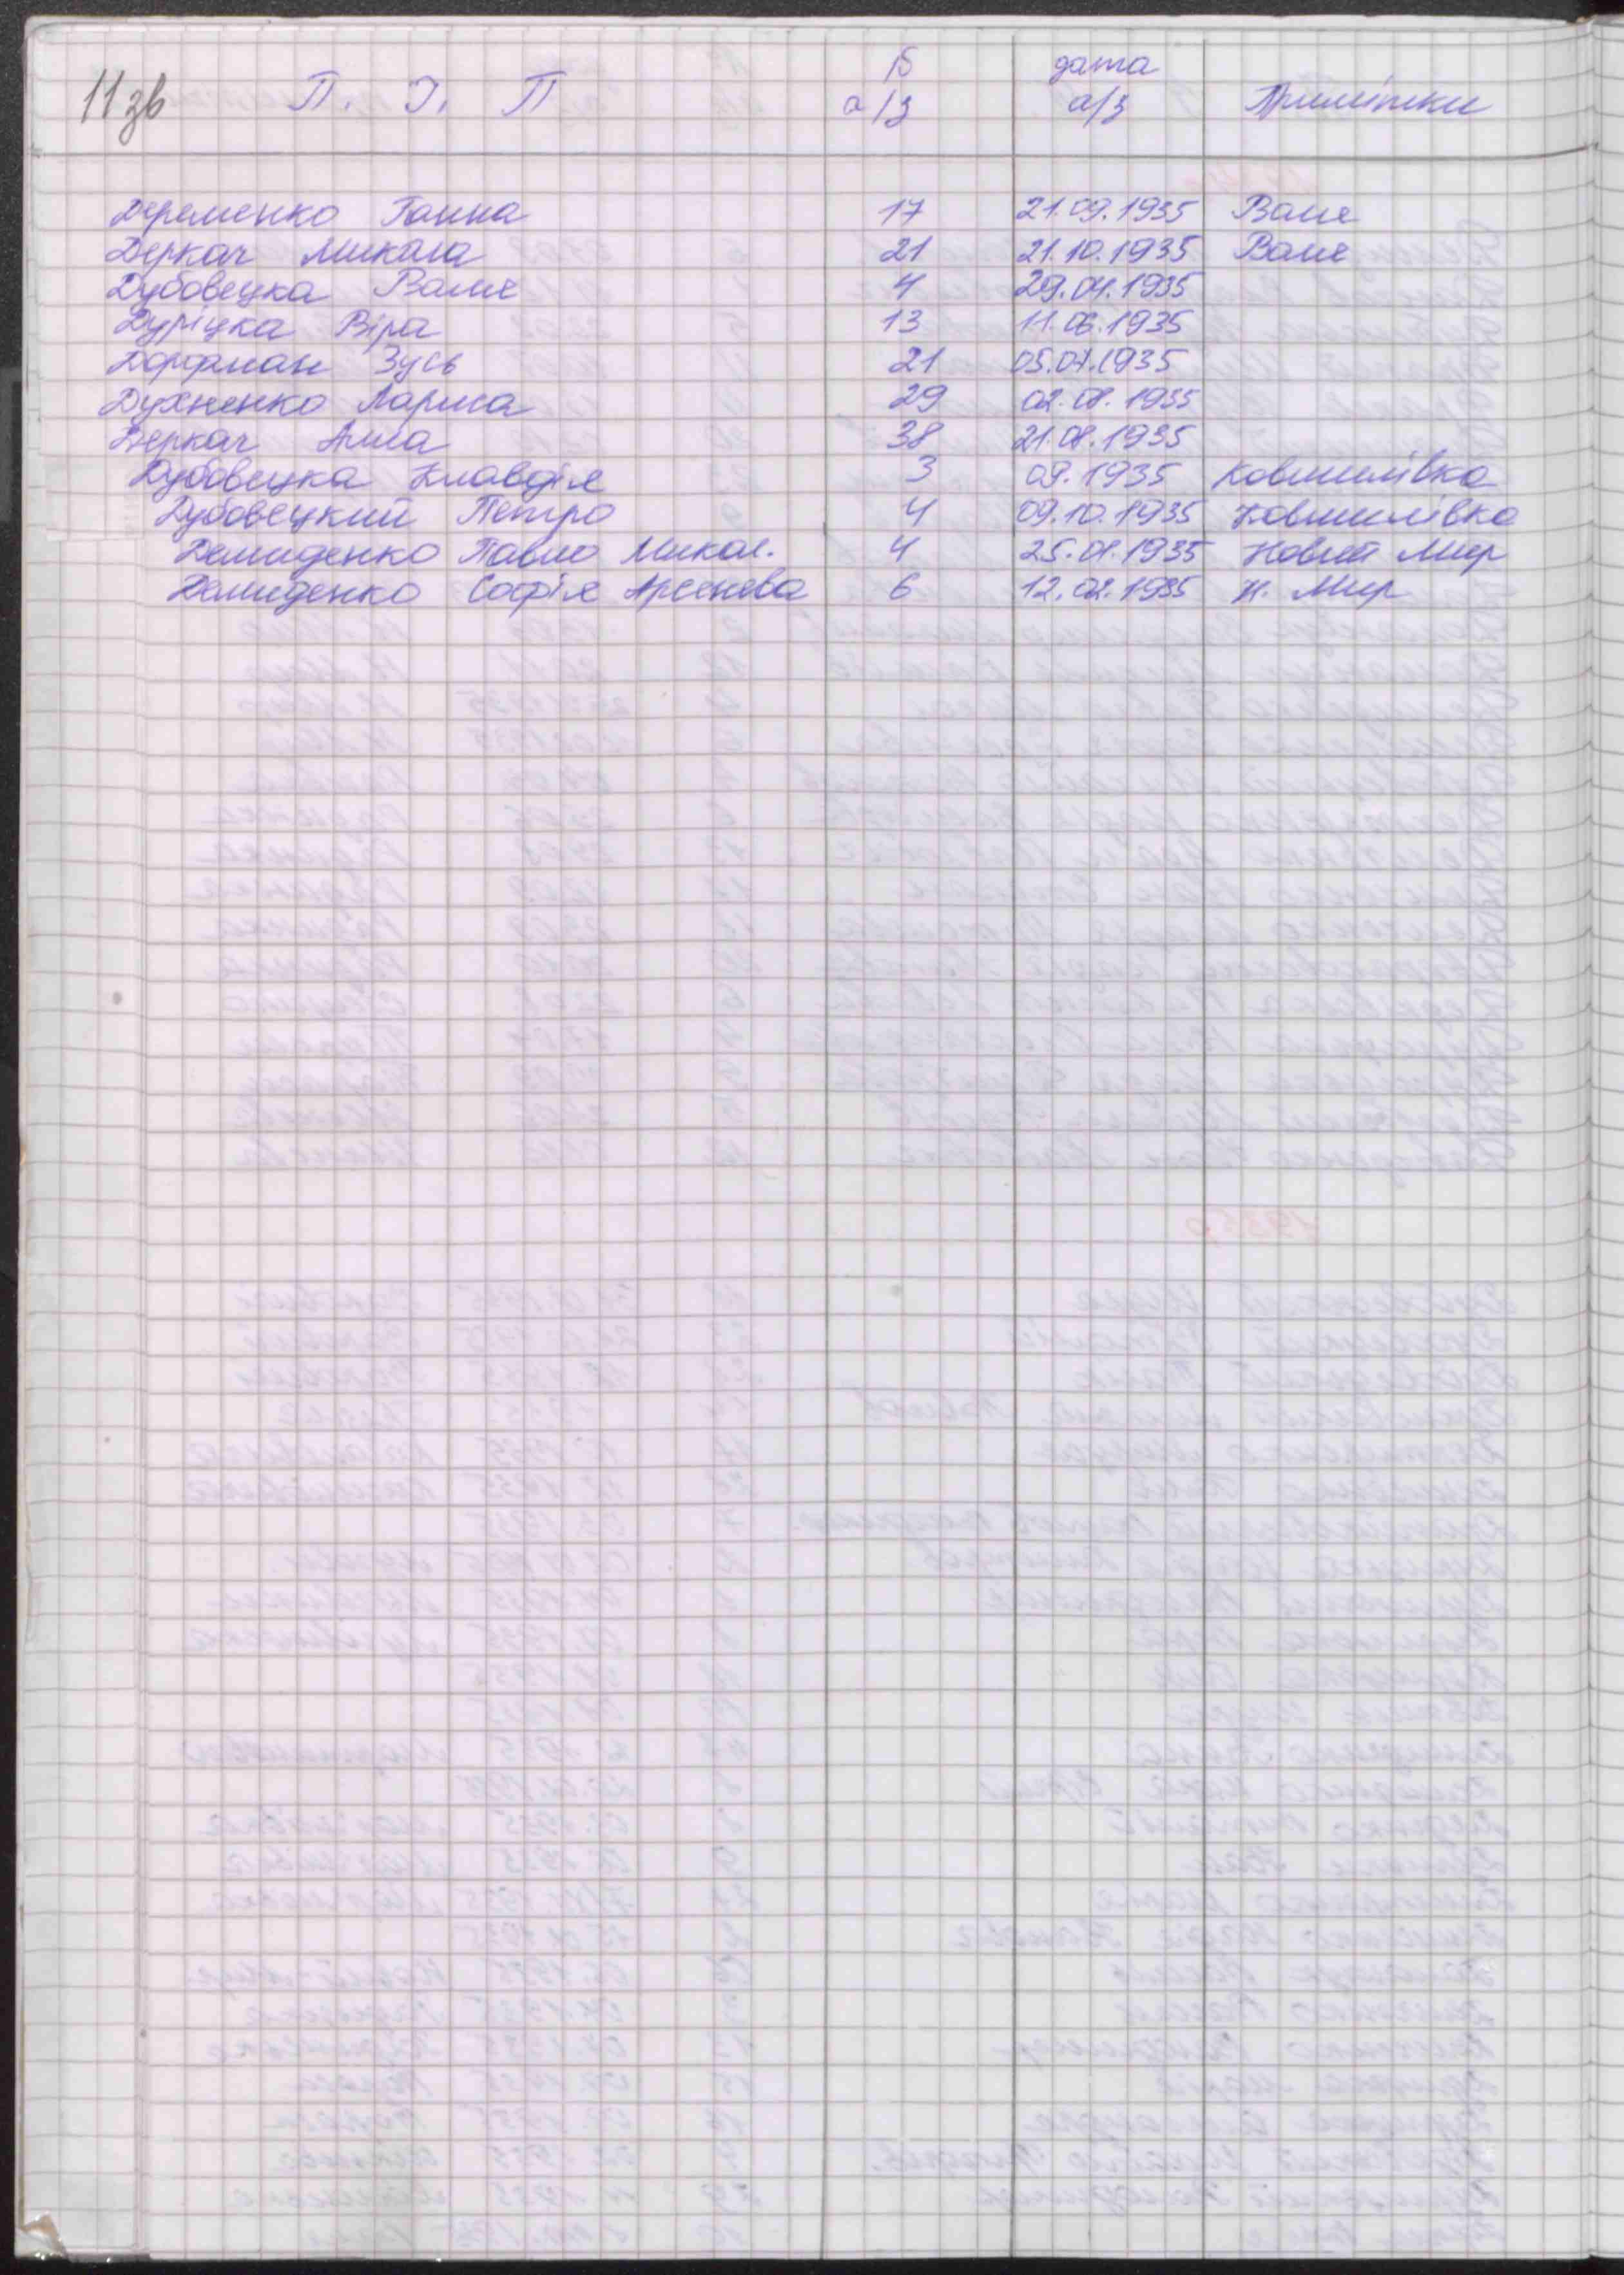 11зв П. І. П № а/з дата а/з Примітки
Деременко Ганна 17 21.09.1935 Валя
Деркач Микола 21 21.10.1935 Валя
Дубовецка Валя 4 29.04.1935
Дуріцка Віра 13 11.06.1935
Дорфман Зусь 21 05.07.1935
Духненко Лариса 29 02.08.1935
Деркач 38 21.08.1935
Дубовецка Клавдія 3 09.1935 Ковшилівка
Дубовецкий Петро 4 09.10.1935 Ковшилівка
Демиденко Павло Микол. 4 25.01.1935 Новий Мир
Демиденко Софія Арсенева 6 12.02.1935 Н. Мир